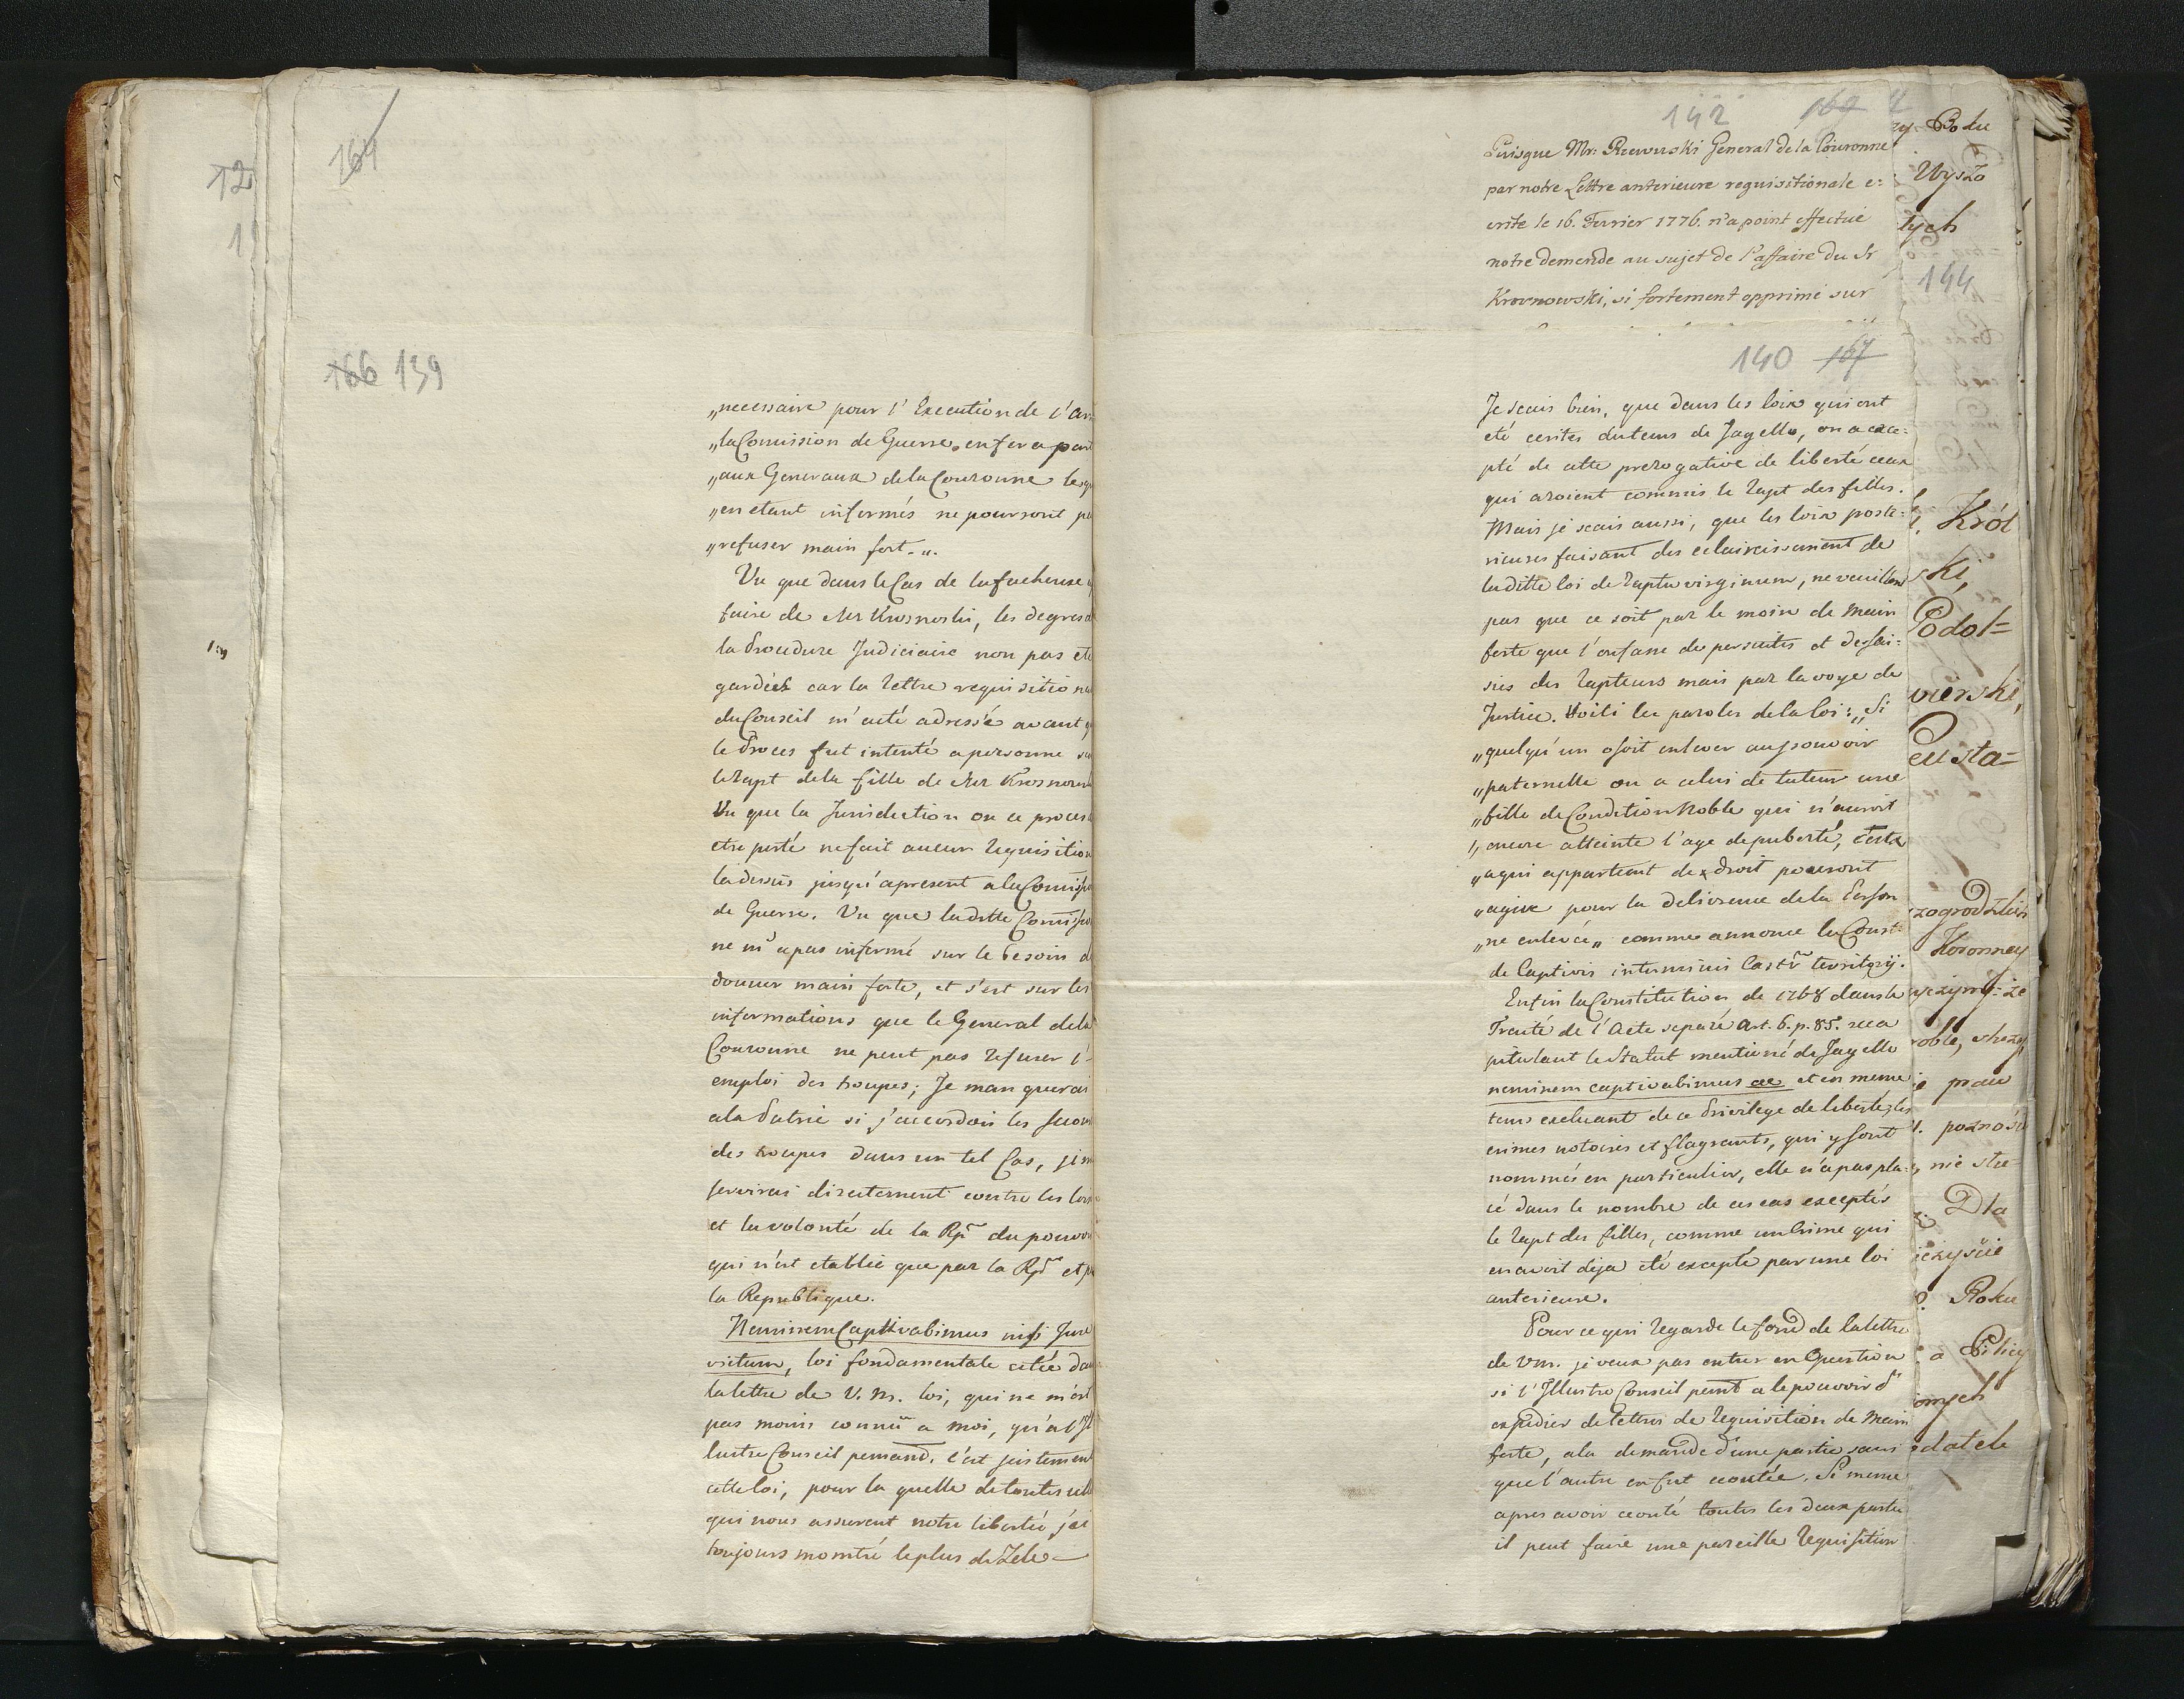 164
12
1
166 139
„necessaire pour l'Execution de l'ar
„la Comission de Guerre, en fera part
„aux Generaux de la Couronne les
„en etant informés ne pourront p
„refuser main fort. „.
Vu que dans le Cas de la facheuse
faire de Mr Krosnoski, les degres
la Procedure Judiciaire non pas eté
gardées car la lettre requisition
du Conseil m'a eté adressée avant
le Proces fut intenté a personne
le Rapt de la fille de Mr Krosnow
Vu que la Jurisdiction ou ce proces
etre porté ne fait aucun Requisition
la dessus jusqu'apresent a la Comis
de Guerre. Vu que la ditte Comis
ne m'a pas informé sur le besoin d
donner main forte, et s'est sur les
informations que le General de la
Couronne ne peut pas refuser l'
emploi des troupes; Je manquerai
a la Patrie si j'accordois les
des troupes dans un tel Cas,
servirois directement contre les loix
et la volonté de la Rp. du pouvo
qui n'est etablie que par la Rp. et p
la Republique.
Neminem Captivabimus nisi Jure
victum, loi fondamentale citée da
la lettre de V. M. loi, qui ne m'est
pas moins connu a moi, qu'a l'Jl
lustre Conseil permand. C'est justement
cette loi, pour la quelle de toutes
qui nous assurent notre liberté j'ai
toujours montré le plus de Zele —
142 169
Puisque Mr: Rzewuski General de la Couronne
par notre Lettre anterieure requisitionale e:
crite le 16. Fevrier 1776. n'a point effectué
notre demende au sujet de l'affaire du Sr
Krosnowski, si fortement opprimé sur
140 167
Je scais bien, que dans les loix qui ont
eté ecrites du tems de Jagello, on a exce:
pté de cette prerogative de liberté ceux
qui avoient commis le rapt des filles.
Mais je scais aussi, que les loix poste:
rieures faisant des eclaircissement de
la ditte loi de Raptu virginum, ne veuillent
pas que ce soit par le moien de main
forte que l'on fasse des et dessai:
sies des Rapteurs mais par la voye de
Justice. Voici les paroles de la loi: „Si
„quelqu'un osoit enlever au pouvoir
„paternelle ou a celui de tuteur une
„fille de Condition Noble qui n'auroit
„encore atteinte l'age de puberté, c'esta
„a qui appartient de droit pouront
„agire pour la delivrence de la Person
„ne enlevée„ comme annonce la Const:
de Captivis interminis Castr territorij.
Enfin la Constitution de 1768 dans le
Traité de l'Acte separé Art. 6. p. 85. reca
pitulant le Statut mentioné de Jagello
neminem captivabimus et en meme
tems excluant de ce Privilege de liberté, les
crimes notoires et flagrants, qui y sont
nommés en particulier, elle n'a pas pla:
cé dans le nombre de ces cas exceptés
le Rapt des filles, comme un Crime qui
en avoit deja eté excepté par une loi
anterieure.
Pour ce qui Regarde le fond de la lettre
de V M. je veux pas entrer en Question
si l'Jllustre Conseil permt a le pouvoir d'
expedier de lettres de Requisition de Main
forte, a la demande d'une partie sans
que l'autre en fut ecoutée. Si meme
apres avoir ecouté toutes les deux partie
il peut faire une pareille Requisition
Roku
Wyszo
tych
144
Król
ski,
Podol=
wierski,
eusta=
zogrodzkie
Koronney
oble,
praw
nie
Dla
Roku
a
omych